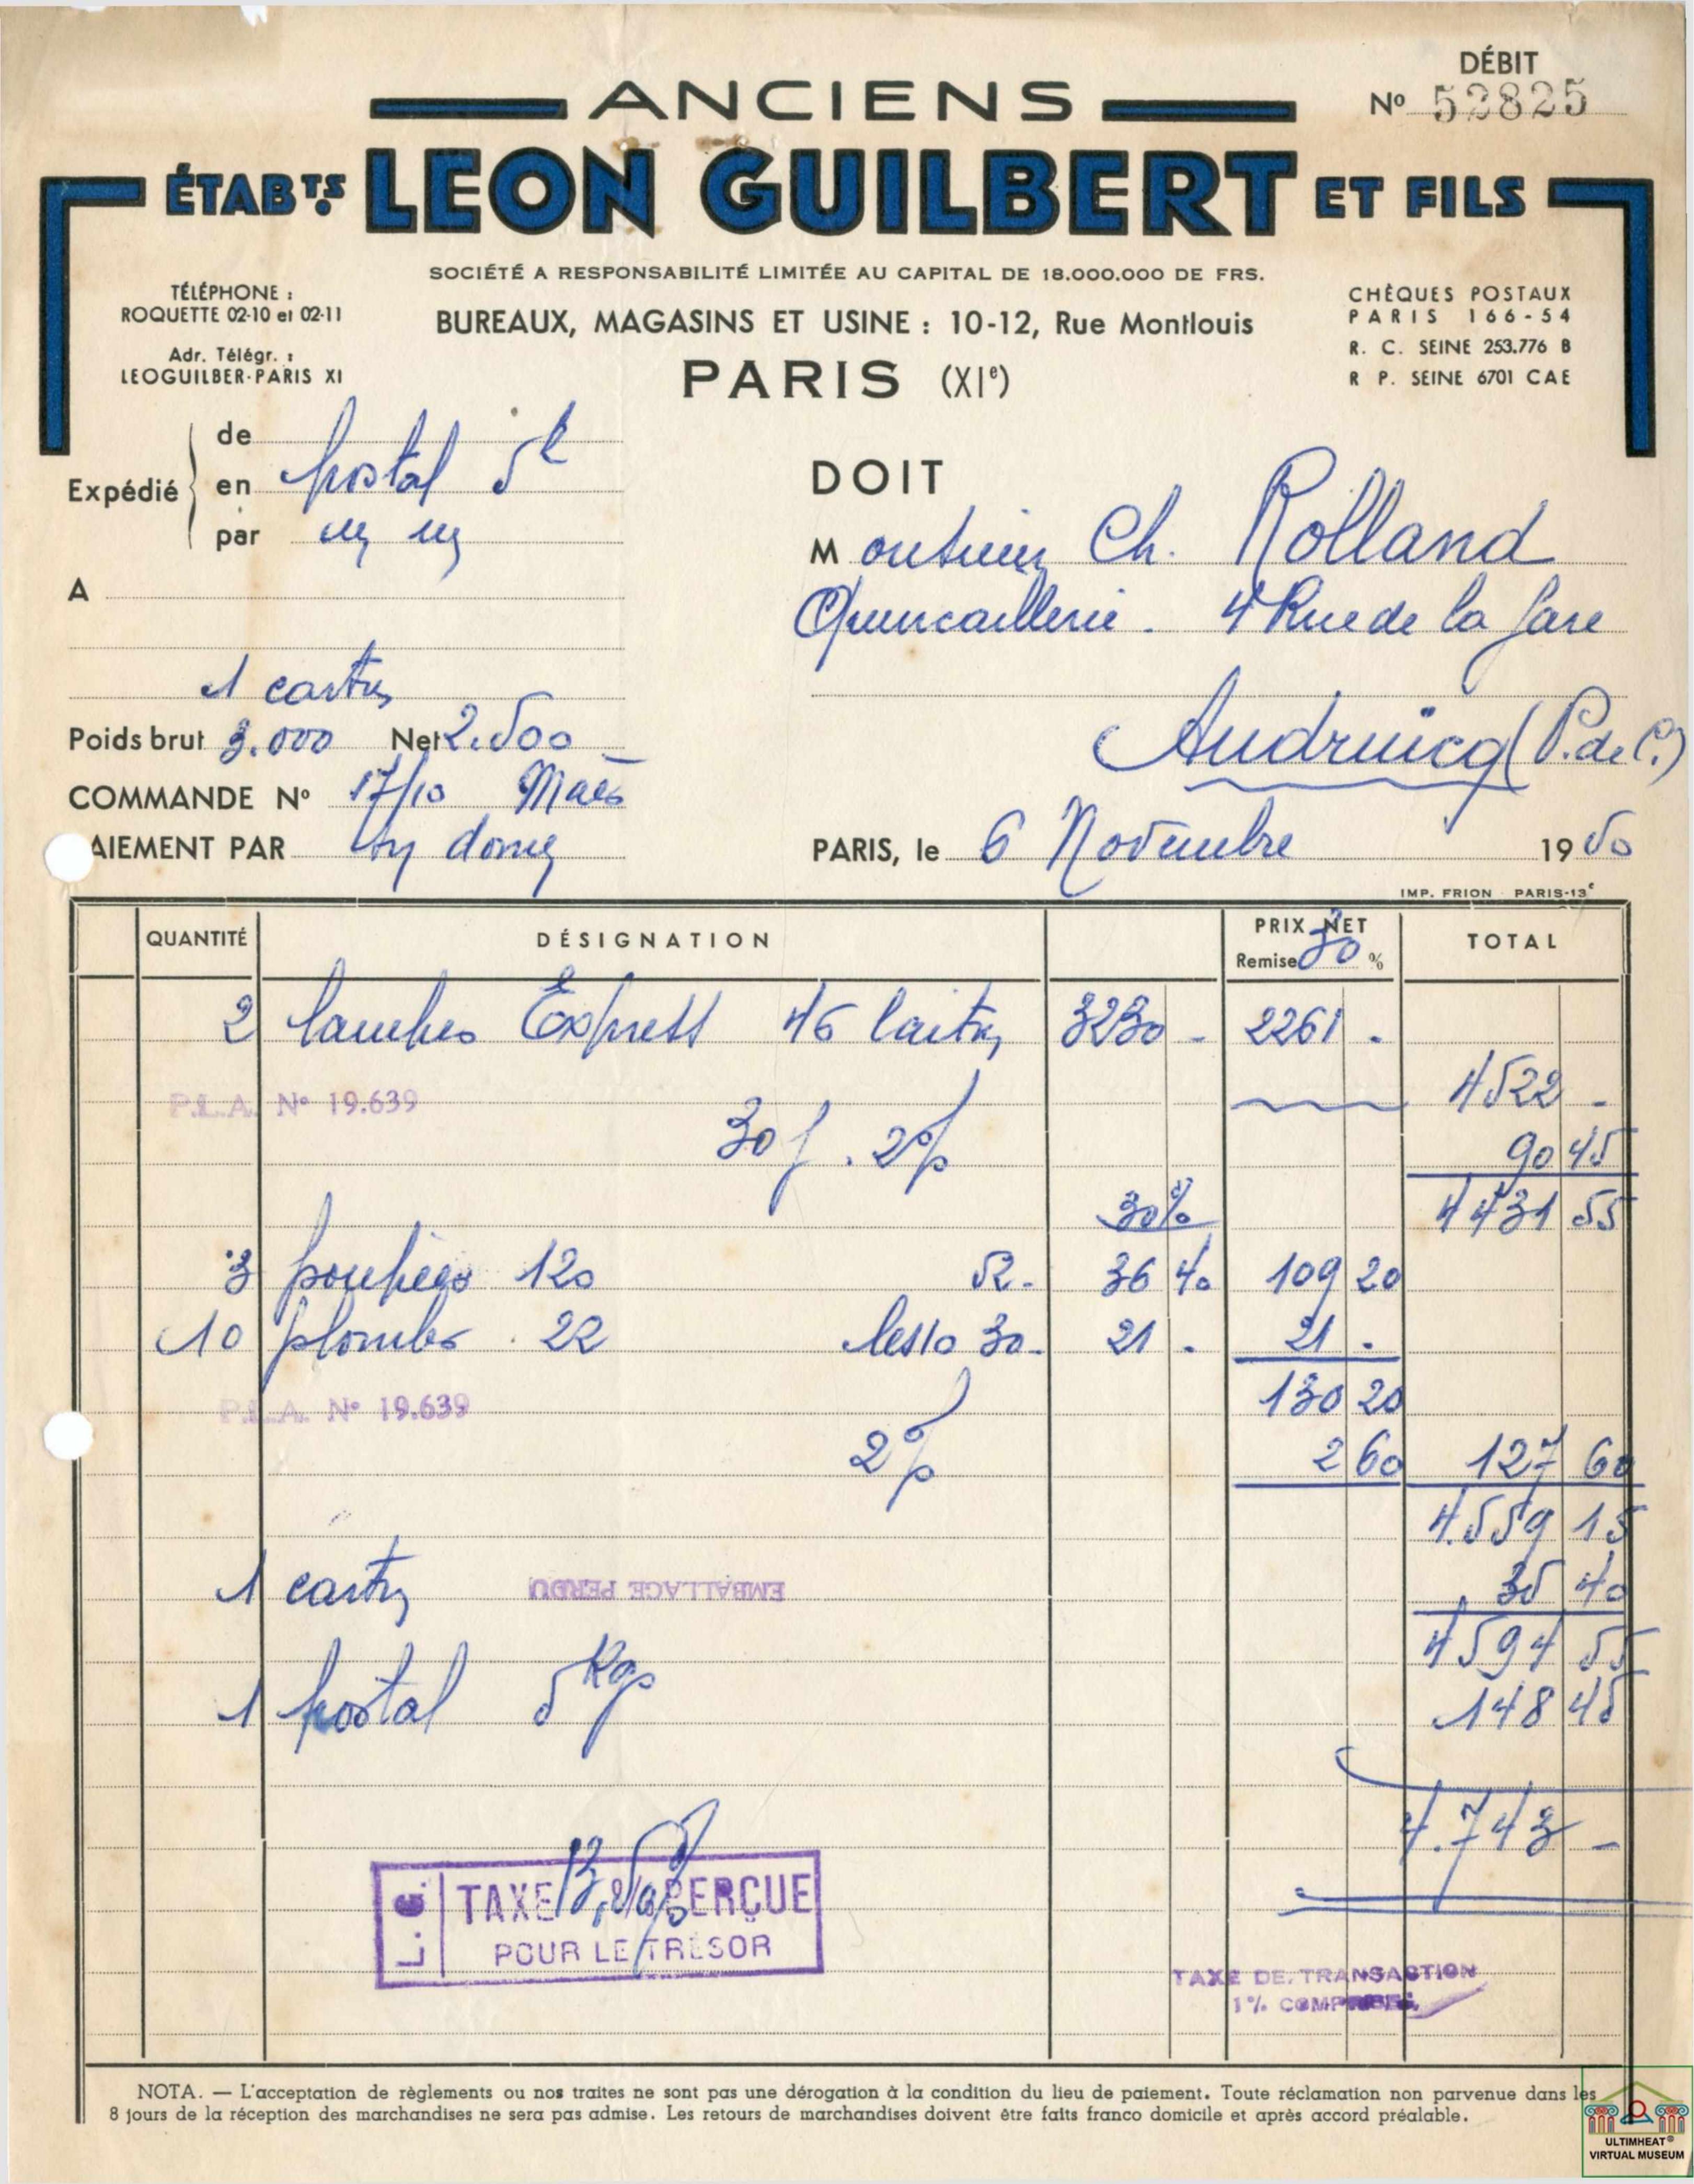 DÉBIT
Nº 52825
ANCIENS
ÉTABTS LEON GUILBERT ET FILS
SOCIÉTÉ A RESPONSABILITÉ LIMITÉE AU CAPITAL DE 18.000.000 DE FRS.
TÉLÉPHONE :
ROQUETTE 02-10 et 02-11
Adr. Télégr. :
LEOGUILBER-PARIS XI
BUREAUX, MAGASINS ET USINE : 10-12, Rue Montlouis
PARIS (XIe)
CHÈQUES POSTAUX
PARIS 166-54
R. C. SEINE 253.776 B
R P. SEINE 6701 CAE
Expédié
de
en postal 5k
par
A
1 carton
Poids brut 3.000 Net 2.500
COMMANDE Nº 17/10 Maës
AIEMENT PAR
DOIT
Monsieur Ch. Rolland
Quincaillerie. 4 Rue de la Gare
Audruicq (P. de C.)
PARIS, le 6 Novembre 1950
IMP. FRION PARIS-13e
QUANTITÉ DÉSIGNATION PRIX NET TOTAL
Remise 30 %
2 lampes Express 46 laiton 3230 - 2261 .
P.L.A. Nº 19.639 4522 -
30 j . 2% 90 45
30% 4431 55
3 120 52. 36 40 109 20
10 plombs . 22 les 10 30. 21 . 21 .
P.L.A. Nº 19.639 130 20
2% 2 60 127 60
4.559 15
1 carton EMBALLAGE PERDU 35 40
4594 55
1 postal 5 Kgs 148 45
4.743 -
L. G. TAXE 13,50% PERÇUE
POUR LE TRÉSOR
TAXE DE TRANSACTION
1% COMPRISE
NOTA. — L'acceptation de règlements ou nos traites ne sont pas une dérogation à la condition du lieu de paiement. Toute réclamation non parvenue dans les
8 jours de la réception des marchandises ne sera pas admise. Les retours de marchandises doivent être faits franco domicile et après accord préalable.
ULTIMHEAT®
VIRTUAL MUSEUM